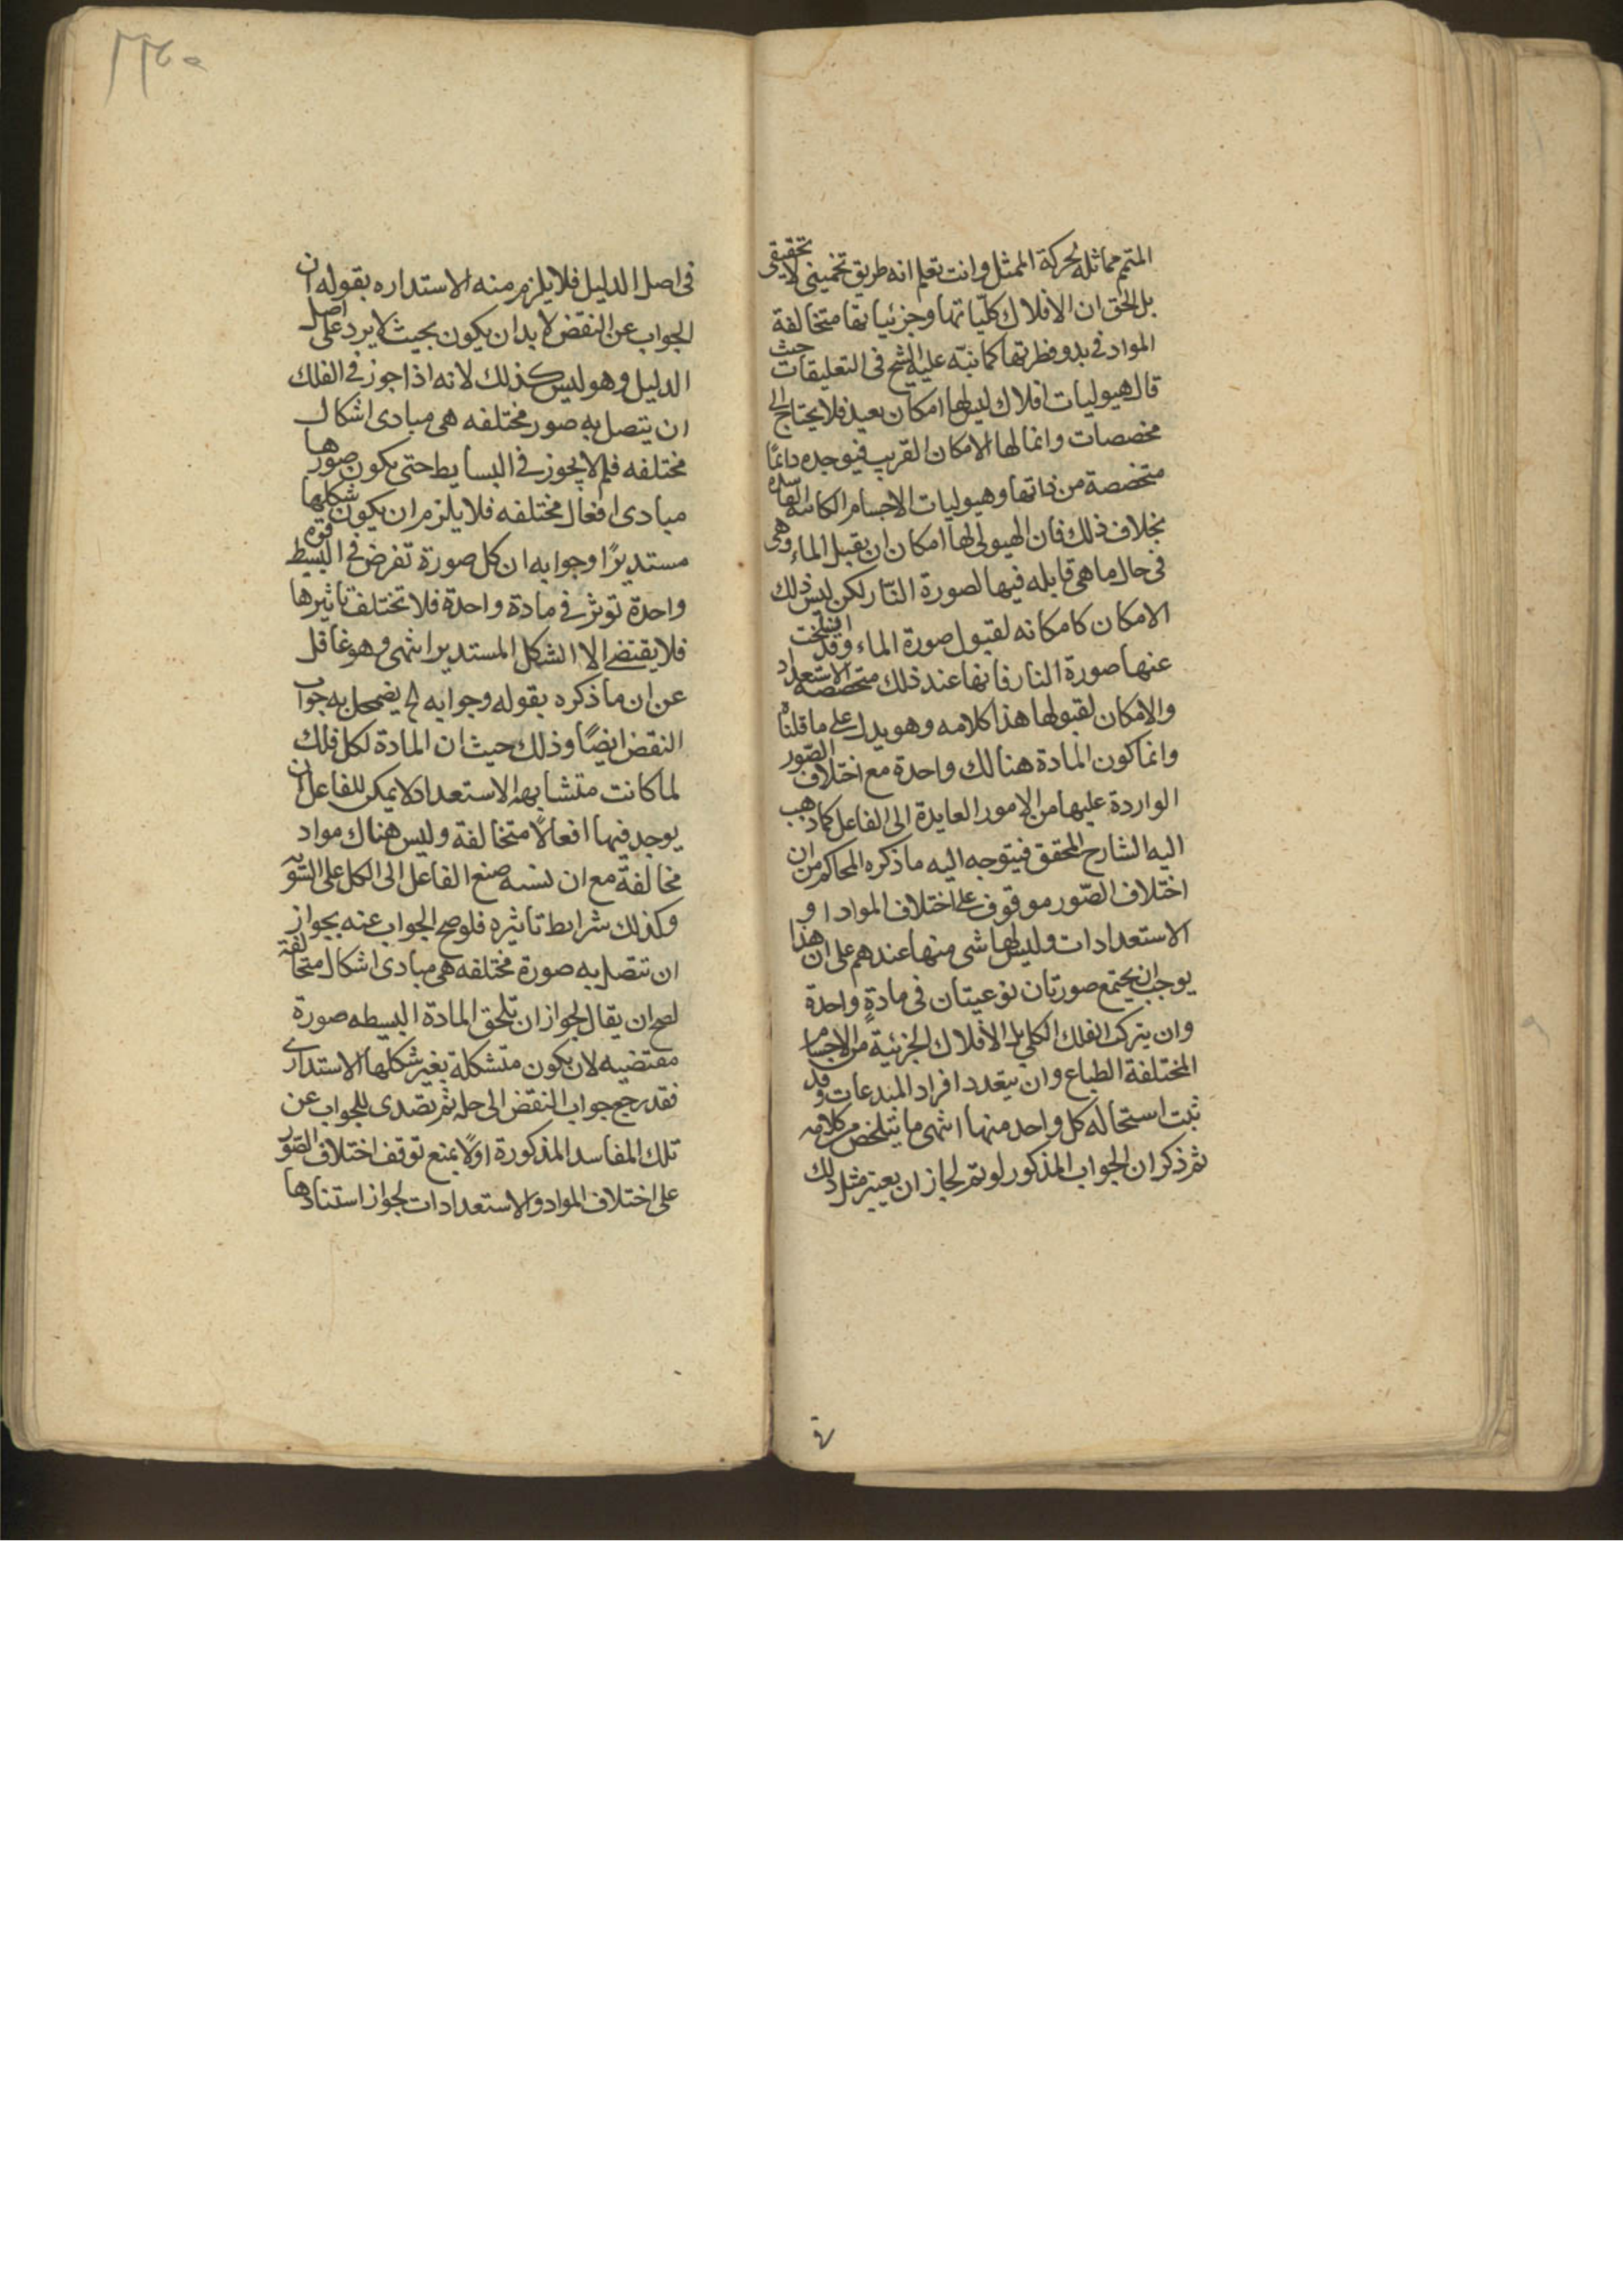 المتمم مماثلة لحركة الممثل وانت تعلم انه طريق تخميني لا تحقيقي
بل الحق ان الافلاك كلياتها وجزئياتها متخالفة
المواد في بدو فطرتها كما نبّه عليه الشيخ في التعليقات حيث
قال هيوليات افلاك ليس لها امكان بعيد فلا يحتاج الى
مخصصات وانما لها الامكان القريب فيوجده دائمًا
متخصصة من ذاتها وهيوليات الاجسام الكائنة الفاسدة
بخلاف ذلك فان الهيولى لها امكان ان يقبل الماء وهى
في حال ما هي قابله فيها لصورة النّار لكن ليس ذلك
الامكان كامكانه لقبول صورة الماء وقد انسلخت
عنها صورة النار فانها عند ذلك متخصصة الاستعداد
والامكان لقبولها هذا كلامه وهو يدل على ما قلناه
وانما كون المادة هنالك واحدة مع اختلاف الصّور
الواردة عليها من الامور العايدة الى الفاعل كما ذهب
اليه الشارح المحقق فيتوجه اليه ما ذكره المحاكم من ان
اختلاف الصّور موقوف على اختلاف المواد او
الاستعدادات وليس لها شى منها عندهم على ان هذا
يوجب ان يجتمع صورتان نوعيتان في مادةٍ واحدة
وان يتركب الفلك الكلي بل الأفلاك الجزئية من الاجسام
المختلفة الطباع وان يتعدد افراد المبدعات وقد
ثبت استحاله كل واحد منها انتهى ما يتلخص من كلامه
ثم ذكر ان الجواب المذكور لو تم لجاز ان يعتبر مثل ذلك
في اصل الدليل فلا يلزم منه الاستداره بقوله ان
الجواب عن النقض لا بد ان يكون بحيث لا يرد على اصل
الدليل وهو ليس كذلك لانه اذا جوز في الفلك
ان يتصل به صور مختلفه هي مبادى اشكال
مختلفه فلم لا يجوز في البسايط حتى يكون صورها
مبادى افعال مختلفه فلا يلزم ان يكون شكلها
مستديرًا وجوابه ان كل صورة تفرض في البسيط قوة
واحدة توثر في مادة واحدة فلا تختلف تاثيرها
فلا يقتضي الا الشكل المستدير انتهى وهو غافل
عن ان ما ذكره بقوله وجوابه لخ يضمحل به جواب
النقض ايضًا وذلك حيث ان المادة لكل فلك
لما كانت متشابهة الاستعداد لا يمكن للفاعل ان
يوجد فيها افعالًا متخالفة وليس هناك مواد
مخالفة مع ان نسبه صنع الفاعل الى الكل على السّويّه
وكذلك شرايط تاثيره فلو صح الجواب عنه بجواز
ان تتصل به صورة مختلفه هي مبادى اشكال متخالفة
لصح ان يقال لجواز ان تلحق المادة البسيطه صورة
مقتضيه لان يكون متشكلة بغير شكلها الاستداري
فقد رجع جواب النقض الى حله ثم تصدى للجواب عن
تلك المفاسد المذكورة اولًا بمنع توقف اختلاف الصّور
على اختلاف المواد والاستعدادات لجواز استنادها